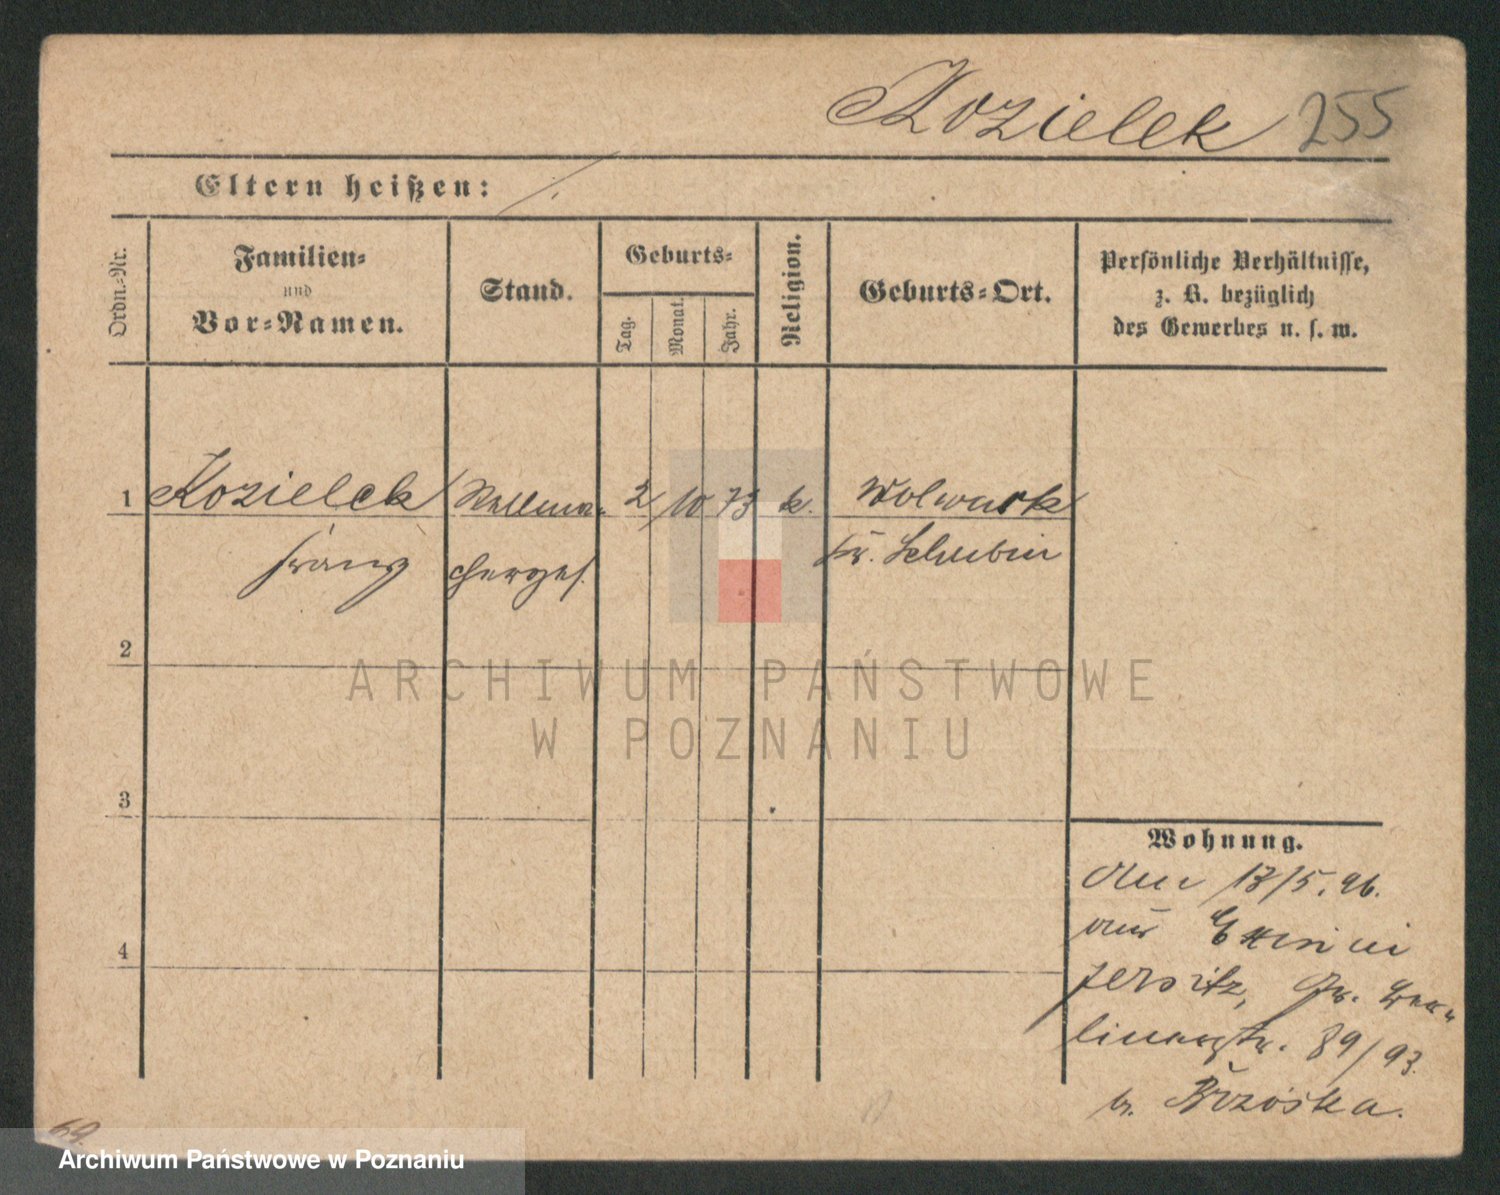 Kozielek 255
Eltern heißen: /.
Ordn.-Nr.
Familien-
und
Vor-Namen.
Stand.
Geburts-
Tag.
Monat.
Jahr.
Religion.
Geburts-Ort.
Persönliche Verhältnisse,
z. B. bezüglich
des Gewerbes u. s. w.
1 Kozielek Stellma- 2/10 73 k. Wolwark
Franz chergES. Kr. Schubin
2
ARCHIWUM PAŃSTWOWE
W POZNANIU
3
Wohnung.
13/5. 96.
aus
4
Jersitz, Gr. Ber-
linerstr. 89/93.
b. Brzoska.
69.
Archiwum Państwowe w Poznaniu